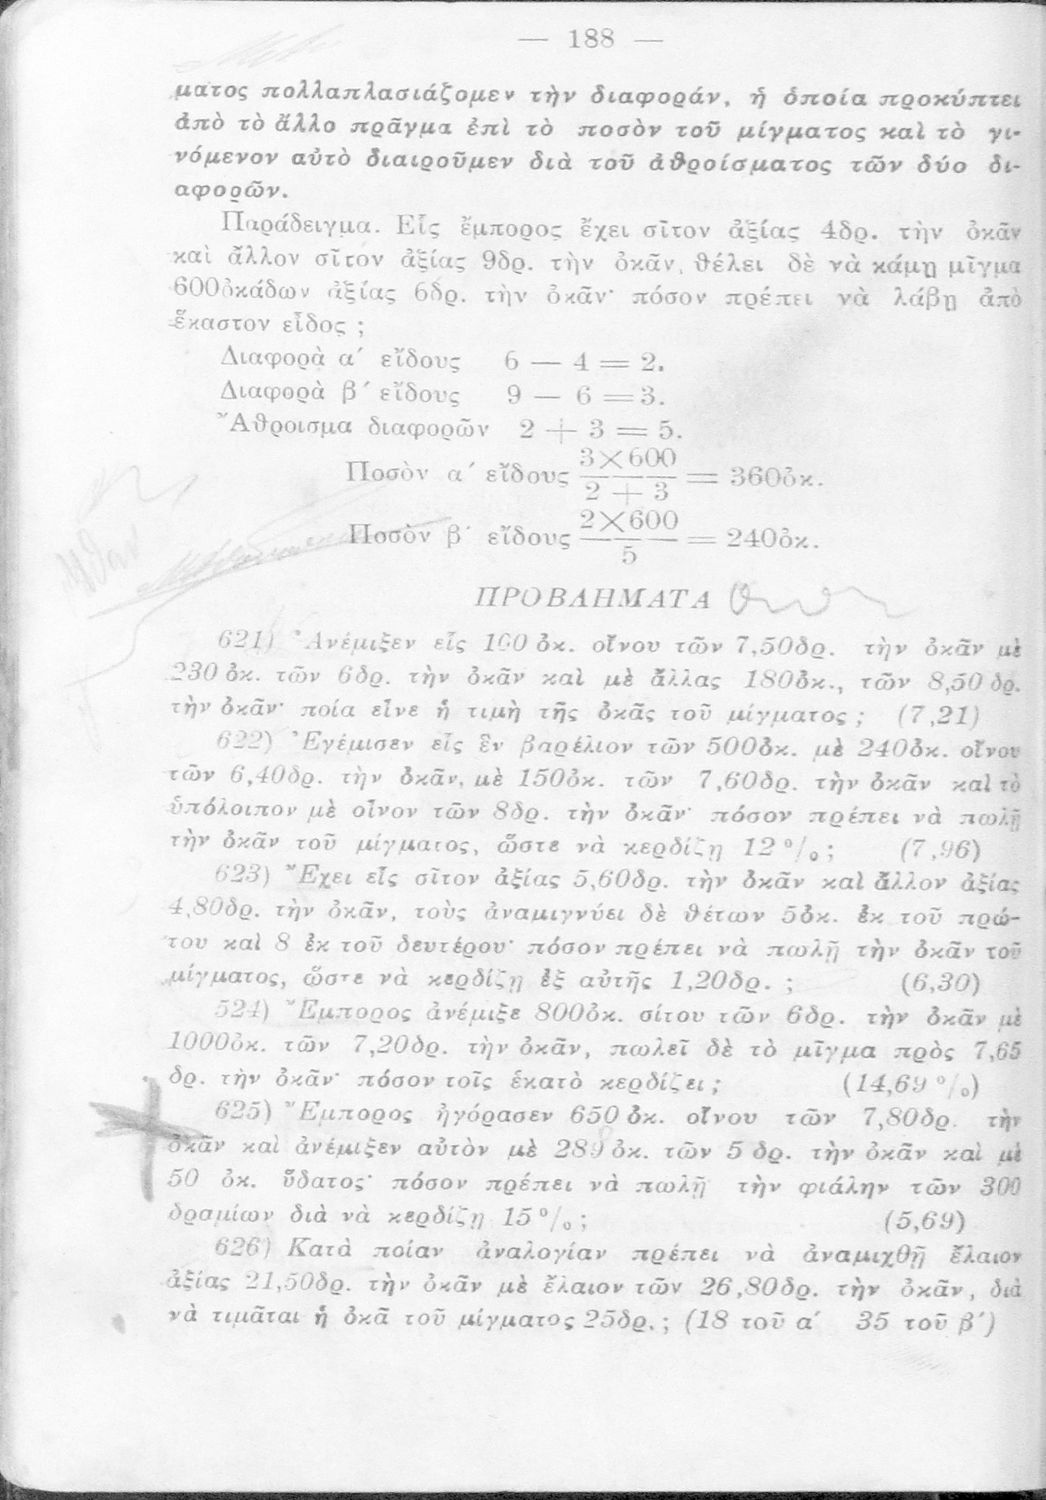 — 188 —
ματος πολλαπλασιάζομεν τὴν διαφοράν, ἡ ὁποία προκύπτει
ἀπὸ τὸ ἄλλο πρᾶγμα ἐπὶ τὸ ποσὸν τοῦ μίγματος καὶ τὸ γι-
νόμενον αὐτὸ διαιροῦμεν διὰ τοῦ ἀθροίσματος τῶν δύο δι-
αφορῶν.
Παράδειγμα. Εἷς ἔμπορος ἔχει σῖτον ἀξίας 4δρ. τὴν ὀκᾶν
καὶ ἄλλον σῖτον ἀξίας 9δρ. τὴν ὀκᾶν, θέλει δὲ νὰ κάμῃ μῖγμα
600ὀκάδων ἀξίας 6δρ. τὴν ὀκᾶν· πόσον πρέπει νὰ λάβῃ ἀπὸ
ἕκαστον εἶδος ;
Διαφορὰ α΄ εἴδους 6 — 4 = 2.
Διαφορὰ β΄ εἴδους 9 — 6 = 3.
Ἄθροισμα διαφορῶν 2 + 3 = 5.
Ποσὸν α΄ εἴδους 3×600 / 2 + 3 = 360ὀκ.
Ποσὸν β΄ εἴδους 2×600 / 5 = 240ὀκ.
ΠΡΟΒΛΗΜΑΤΑ
621) Ἀνέμιξεν εἷς 100 ὀκ. οἴνου τῶν 7,50δρ. τὴν ὀκᾶν μὲ
230 ὀκ. τῶν 6δρ. τὴν ὀκᾶν καὶ μὲ ἄλλας 180ὀκ., τῶν 8,50 δρ.
τὴν ὀκᾶν· ποία εἶνε ἡ τιμὴ τῆς ὀκᾶς τοῦ μίγματος ; (7,21)
622) Ἐγέμισεν εἷς ἓν βαρέλιον τῶν 500ὀκ. μὲ 240ὀκ. οἴνου
τῶν 6,40δρ. τὴν ὀκᾶν, μὲ 150ὀκ. τῶν 7,60δρ. τὴν ὀκᾶν καὶ τὸ
ὑπόλοιπον μὲ οἶνον τῶν 8δρ. τὴν ὀκᾶν· πόσον πρέπει νὰ πωλῇ
τὴν ὀκᾶν τοῦ μίγματος, ὥστε νὰ κερδίζῃ 12 %; (7,96)
623) Ἔχει εἷς σῖτον ἀξίας 5,60δρ. τὴν ὀκᾶν καὶ ἄλλον ἀξίας
4,80δρ. τὴν ὀκᾶν, τοὺς ἀναμιγνύει δὲ θέτων 5ὀκ. ἐκ τοῦ πρώ-
του καὶ 8 ἐκ τοῦ δευτέρου· πόσον πρέπει νὰ πωλῇ τὴν ὀκᾶν τοῦ
μίγματος, ὥστε νὰ κερδίζῃ ἐξ αὐτῆς 1,20δρ. ; (6,30)
524) Ἔμπορος ἀνέμιξε 800ὀκ. σίτου τῶν 6δρ. τὴν ὀκᾶν μὲ
1000ὀκ. τῶν 7,20δρ. τὴν ὀκᾶν, πωλεῖ δὲ τὸ μῖγμα πρὸς 7,65
δρ. τὴν ὀκᾶν· πόσον τοῖς ἑκατὸ κερδίζει ; (14,69 %)
625) Ἔμπορος ἠγόρασεν 650 ὀκ. οἴνου τῶν 7,80δρ. τὴν
ὀκᾶν καὶ ἀνέμιξεν αὐτὸν μὲ 289 ὀκ. τῶν 5 δρ. τὴν ὀκᾶν καὶ μὲ
50 ὀκ. ὕδατος· πόσον πρέπει νὰ πωλῇ τὴν φιάλην τῶν 300
δραμίων διὰ νὰ κερδίζῃ 15 %; (5,69)
626) Κατὰ ποίαν ἀναλογίαν πρέπει νὰ ἀναμιχθῇ ἔλαιον
ἀξίας 21,50δρ. τὴν ὀκᾶν μὲ ἔλαιον τῶν 26,80δρ. τὴν ὀκᾶν, διὰ
νὰ τιμᾶται ἡ ὀκᾶ τοῦ μίγματος 25δρ. ; (18 τοῦ α΄ 35 τοῦ β΄)